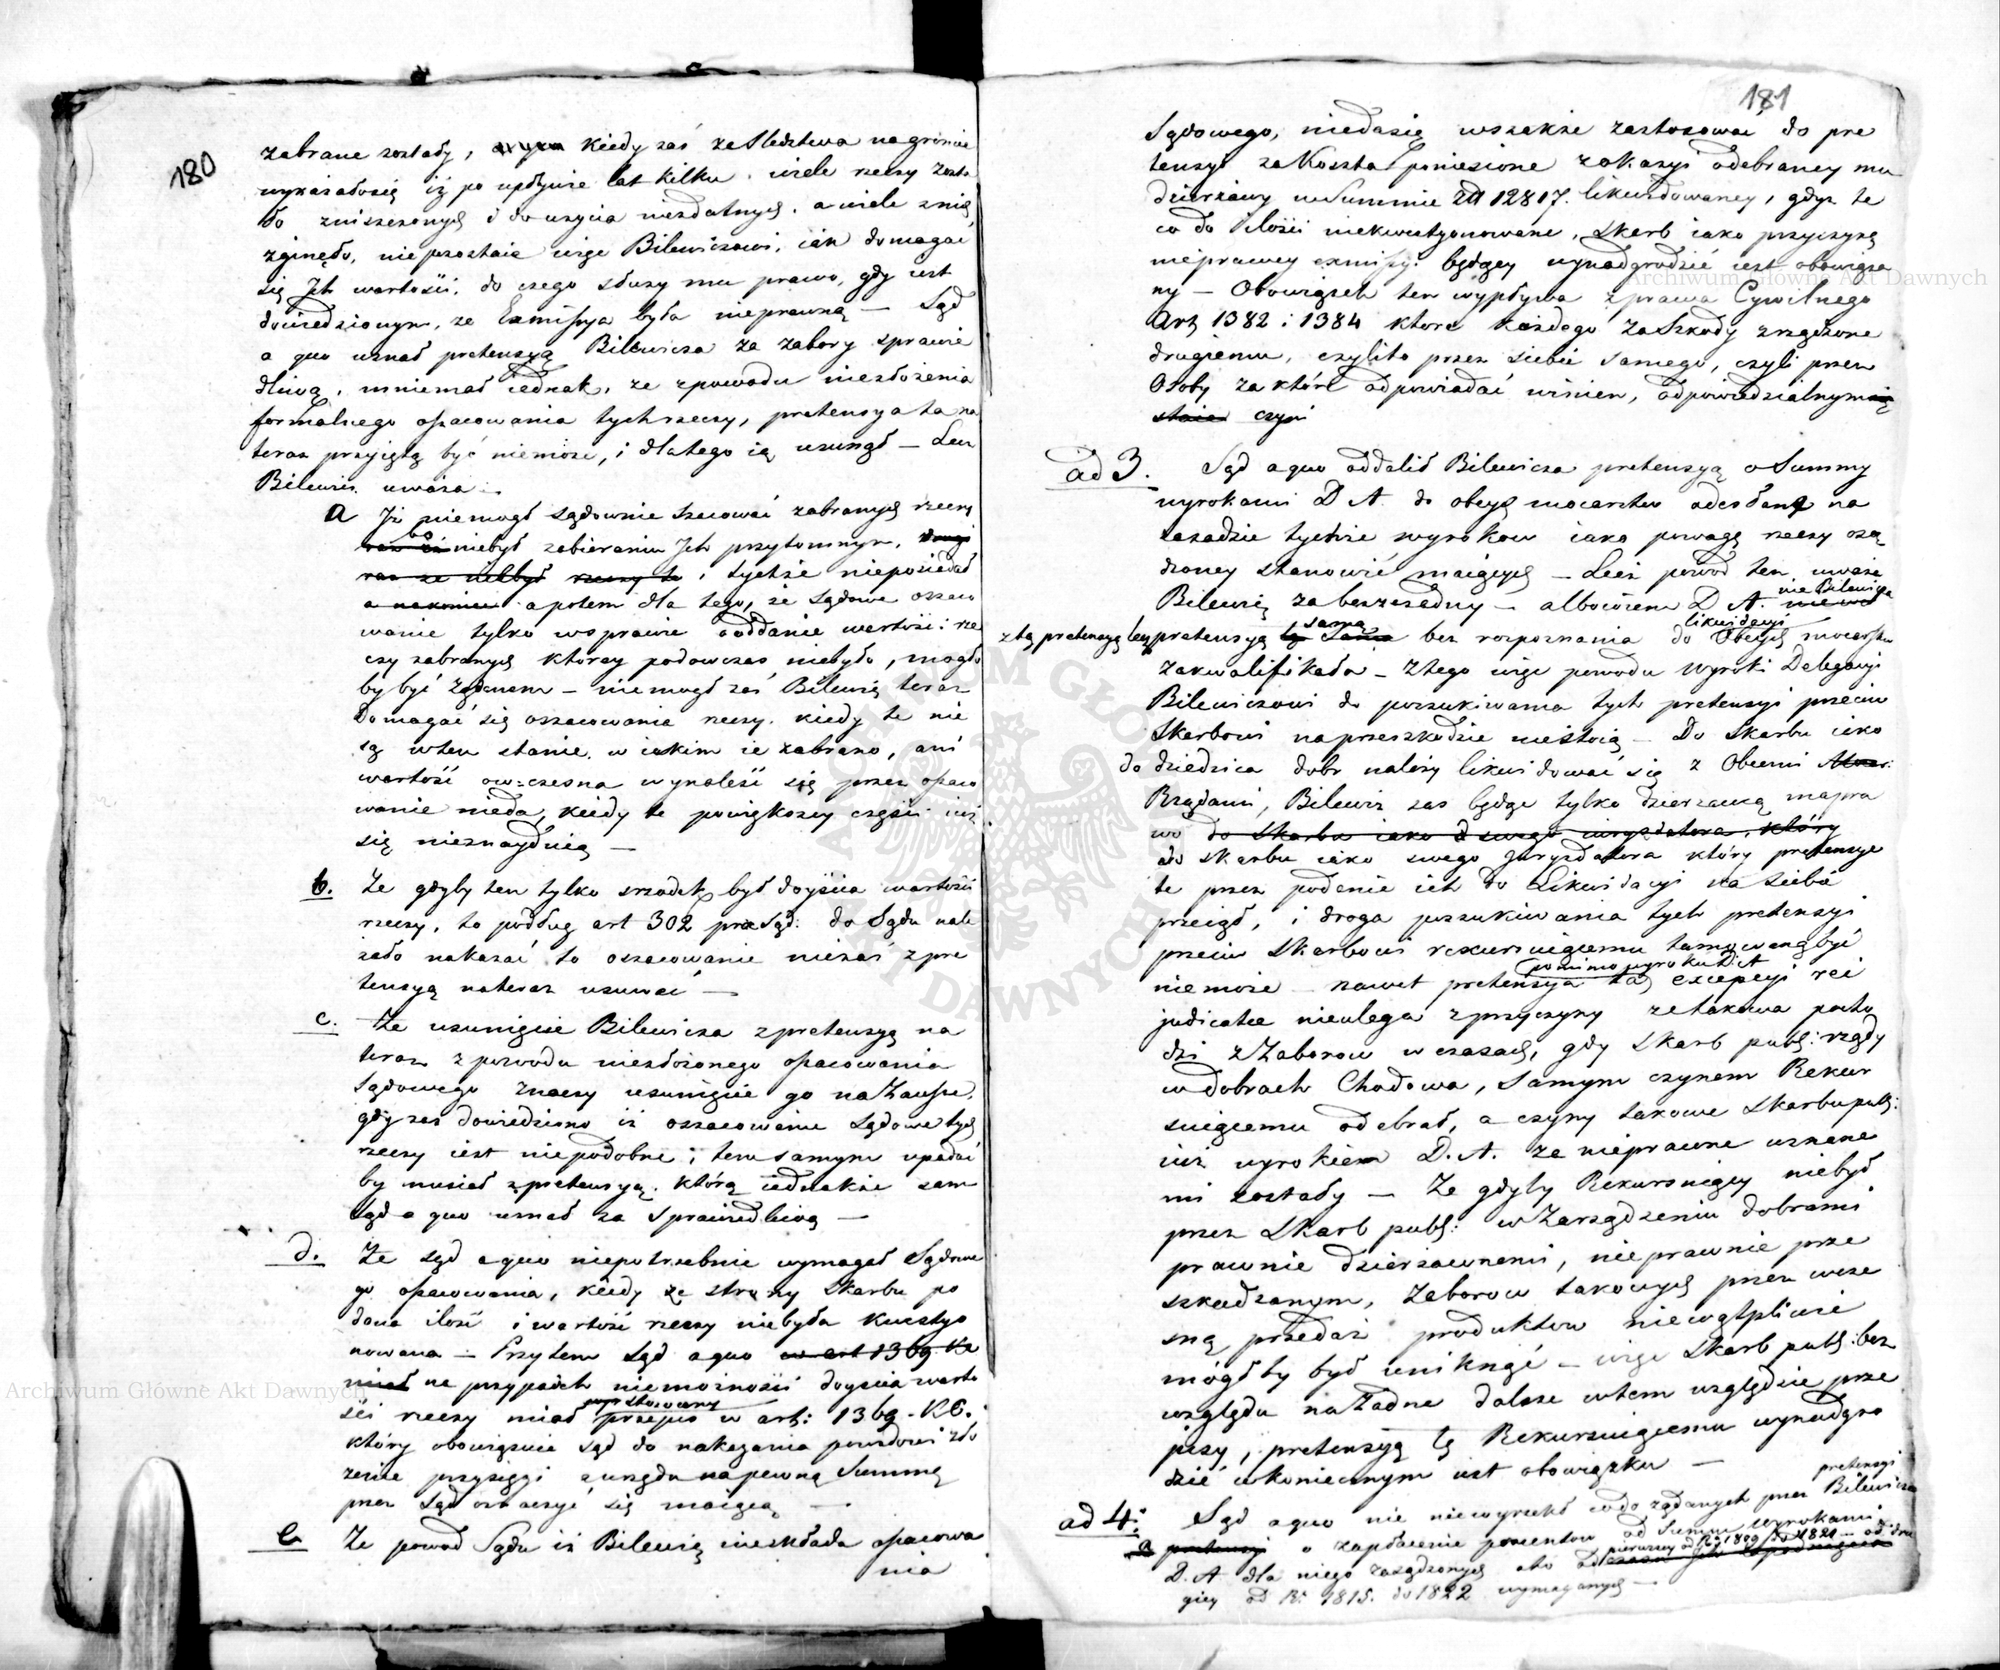 180
zabrane zostały, kiedy zaś ze Sledztwa na gróncie
wykazałosię iż po upłynie lat kilku wiele rzeczy zosta
ło zniszczonych i do uzycia niezdatnych, a wiele z nich
zginęło, niepozostaie więc Bilewiczowi, iak domagać
się Jch wartości, do czego słuzy mu prawo, gdy iest
dowiedzionym, ze Exmissya była nieprawną — Sąd
a quo uznał pretensyą Bilewicza za zabory sprawie
dliwą, mniemał iednak, ze z powodu niezłożenia
formalnego oszacowania tych rzeczy, pretensya ta na
teraz przyiętą być niemoże, i dlatego ią usunął — Lecz
Bilewicz uważa:
a Jż niemogł sądownie szacować zabranych rzeczy
bo niebył zabieraniu Jch przytomnym,
raz ze niebył rzeczy te i tychże nieposiadał
a nakoniec a potem dla tego, że Sądowe oszaco
wanie tylko w sprawie o oddanie wartości rze
czy zabranych ktorey podowczas niebyło, mogło
by być żądanem — niemogł zaś Bilewicz teraz
Domagać się oszacowania rzeczy, kiedy te nie
są w tem stanie, w iakim ie zabrano, ani
wartość ow=czesna wynaleść się przez oszaco
wanie nieda, kiedy te powiększey części iuż
się nieznaydują —
b. Ze gdyby ten tylko srzodek był doyścia wartości
rzeczy, to podług art 302 pra Sąd: do Sądu nale
żało nakazać to oszacowanie niezaś z pre
tensyą nateraz usuwać —
c. Ze usunięcie Bilewicza z pretensyą na
teraz z powodu niezłożonego oszacowania
Sądowego znaczy usunięcie go na Zawsze,
gdy zaś dowiedziono iż oszacowanie Sądowe tych
rzeczy iest niepodobne; tem samym upadać
by musiał z pretensyą, którą iednakże sam
Sąd a quo uznał za Sprawiedliwą —
d. Ze Sąd a quo niepotrzebnie wymagał Sądowe
go oszacowania, kiedy ze strony Skarbu po
dana ilość i wartość rzeczy niebyła kwestyo
nowana — Przytem Sąd a quo w art 1369 Ke
miał na przypadek niemożności doyścia warto
ści rzeczy miał przepis w art: 1369. KC.
który obowiązuie Sąd do nakazania powodowi zło
żenie przysięgi z urzędu na pewną Summę
przez Sąd oznaczyć się maiącą —
e Ze powod Sądu iż Bilewicz nieskłada oszacowa
nia
181
Sądowego, niedasię wszakże zastosować do pre
tensyi za Koszta poniesione z okazyi odebraney mu
dzierżawy w Summie zł 12817. likwidowaney, gdyz te
co do ilości niekwestyonowane, Skarb iako przyczyną
nieprawney exmissyi będący wynadgrodzić iest obowiąza
ny — Obowiązek ten wypływa z prawa Cywilnego
Art 1382 i 1384 ktore każdego za Szkody zrządzone
drugiemu, czylito przez siebie samego, czyli przez
Osoby za które odpowiadać winien, odpowiedzialnym
staie czyni
ad 3. Sąd a quo oddalił Bilewicza pretensyą o Summy
wyrokami D A. do obcych mocarstw odesłane na
zasadzie tychże wyrokow iako powagę rzeczy osą
dzoney stanowić maiących — Lecz powod ten uważa
Bilewicz za bezzasadny — albowiem D A. nie Bilewicza
z tą pretensyą lecz pretensyą samą bez rozpoznania do likwidacyi Obcych mocarstw
zakwalifikała — Z tego więc powodu wyroki Delegacyi
Bilewiczowi do poszukiwania tych pretensyi przeciw
Skarbowi na przeszkodzie niestoią — Do Skarbu iako
do dziedzica dobr należy likwidować się z Obcemi
Rządami, Bilewicz zas będąc tylko dzierzawcą ma pra
wo do Skarbu iako d swego iuryzdatora, który
do skarbu iako swego Juryzdatora który pretensye
te przez podanie ich do Likwidacyi na siebie
przeiął, i droga poszukiwania tych pretensyi
przeciw Skarbowi rekursuiącemu tamowaną być
niemoże — nawet pretensya ta pomimo wyroku D. A excepcyi rei
judicatae nieulega z przyczyny ze takowa pocho
dzi z Zaborow w czasach, gdy Skarb publ: rządy
w dobrach Chodowa, samym czynem Rekur
suiącemu odebrał, a czyny takowe Skarbu publ:
iuż wyrokiem D. A. za nieprawne uznane
mi zostały — Ze gdyby Rekursuiący niebył
przez Skarb publ: w Zarządzeniu dobrami
prawnie dzierzawnemi, nieprawnie prze
szkadzanym, Zaborow takowych przez wcze
sną przedaż produktow niewątpliwie
mógłby był uniknąć — więc Skarb publ: bez
względu na żadne dalsze w tem względzie prze
pisy, pretensyą tę Rekursuiącemu wynadgro
dzić w koniecznym iest obowiązku —
ad 4. Sąd a quo nic niewyrzekł co do żądanych przez Bilewicza pretensyi
pretensyi o zapłacenie procentow od Summ wyrokami
D. A. dla niego zasądzonych, ato od pierwszey od R. 1809 do 1821 — od dru
giey od R: 1815. do 1822 wymaganych —
Archiwum Główne Akt Dawnych
Archiwum Główne Akt Dawnych
ARCHIWUM GŁÓWNE AKT DAWNYCH